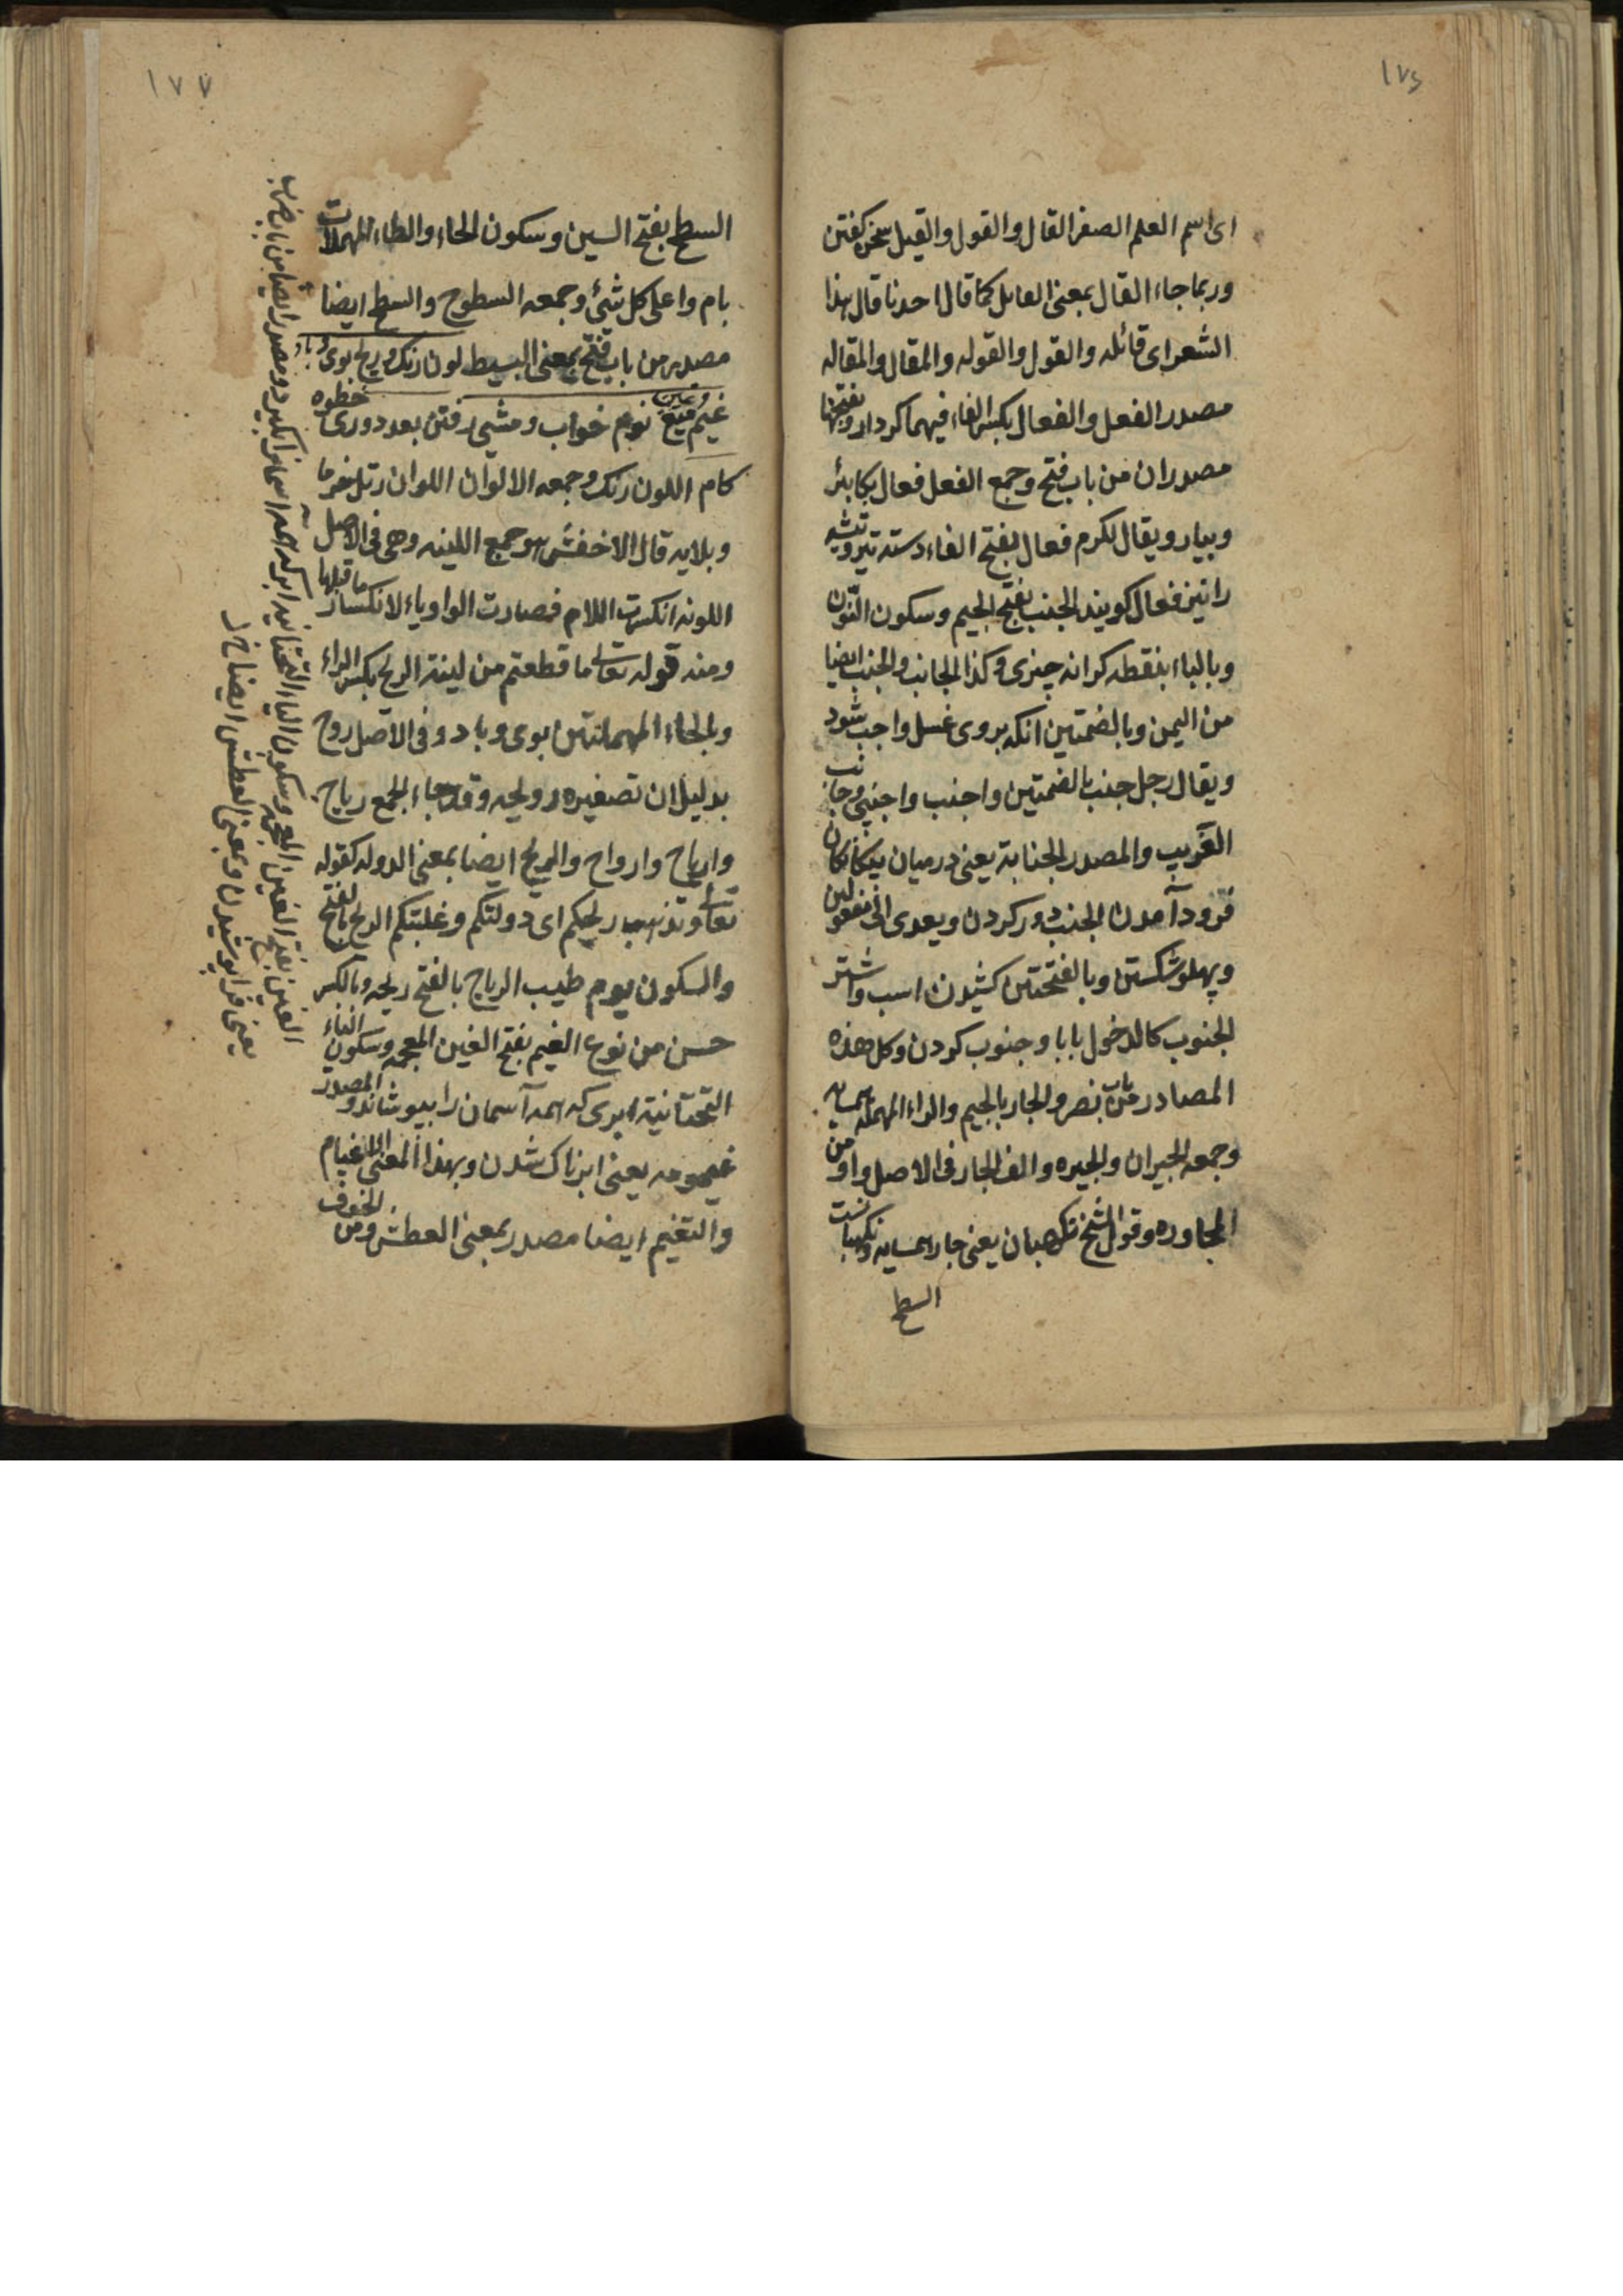 ١٧٦
ای اسم العلم الصفر القال والقول والقیل سخن کفتن
وربما جاء القال بمعنی القایل کما قال احدنا قال هذا
الشعر ای قائله والقول والقوله والمقال والمقاله
مصدر الفعل والفعال بکسر الفاء فیهما کردار وبفتحها
مصدران من باب فتح وجمع الفعل فعال بکا بئر
وبیار ویقال لکرم فعال بفتح الفاء دسته تبر وتیشه
را نیز فعال کویند الجنب بفتح الجیم وسکون النون
وبالباء بنقطه کرانه چیزی وکذا الجانب والجنب ایضا
من الیمن وبالضمتین انکه بروی غسل واجب شود
ویقال رجل جنب بالضمتین واجنب واجنبی وجانب
الغریب والمصدر الجنابة یعنی درمیان بیکانکان
فرود آمدن الجنب دور کردن ویعدی الی مفعولین
وپهلو شکستن وبالفتحتین کشیدن اسب واشتر
الجنوب کالدخول بابا وجنوب کردن وکل هذه
المصادر من باب نصر والجار بالجیم والراء المهمله همسایه
وجمعه الجیران والجیره والف الجار فی الاصل واو من
المجاوره وقول الشیخ نکهبان یعنی جار همسایه ونکهبانست
السطح
١٧٧
السطح بفتح السین وسکون الحاء والطاء المهملات
بام واعلی کل شئ وجمعه السطوح والسطح ایضا
مصدر من باب فتح بمعنی البسیط لون رنک وریح بوی وباد
غیم میغ نوم خواب ومشی رفتن بعد دوری خطوه
کام اللون رنک وجمعه الالوان اللوان رتل خرما
وبلایه قال الاخفش هو جمع اللینه وهی فی الاصل
اللونه انکسرت اللام فصارت الواو یاء لانکسار ما قبلها
ومنه قوله تعالی ما قطعتم من لینة الریح بکسر الراء
وبالحاء المهملتین بوی وباد وفی الاصل روح
بدلیل ان تصغیره رویحه وقد جاء الجمع ریاح
واریاح وارواح والریح ایضا بمعنی الدوله کقوله
تعالی وتذهب ریحکم ای دولتکم وغلبتکم الریح بالفتح
والسکون یوم طیب الریاح بالفتح ریحه وبالکسر
حسن من نوع الغیم بفتح الغین المعجمه وسکون الیاء
التحتانیة ابری که همه آسمان را بپوشاند والمصدر
غیمومه یعنی ابرناک شدن وبهذا المعنی الاغیام
والتغیم ایضا مصدر بمعنی العطش ومن الخوف
الغین بفتح الغین المعجمه وسکون الیاء التحتانیه ابر که همه آسمان بکیرد ومصدر ایضا من باب ضرب
یعنی فرا پوشیدن وبمعنی العطش ایضا